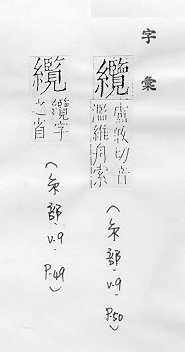 字彙
纜
盧敢切音
濫維舟索
(糸部.v.9.P.50)
䌫
纜字
之省
(糸部.v.9.P.49)